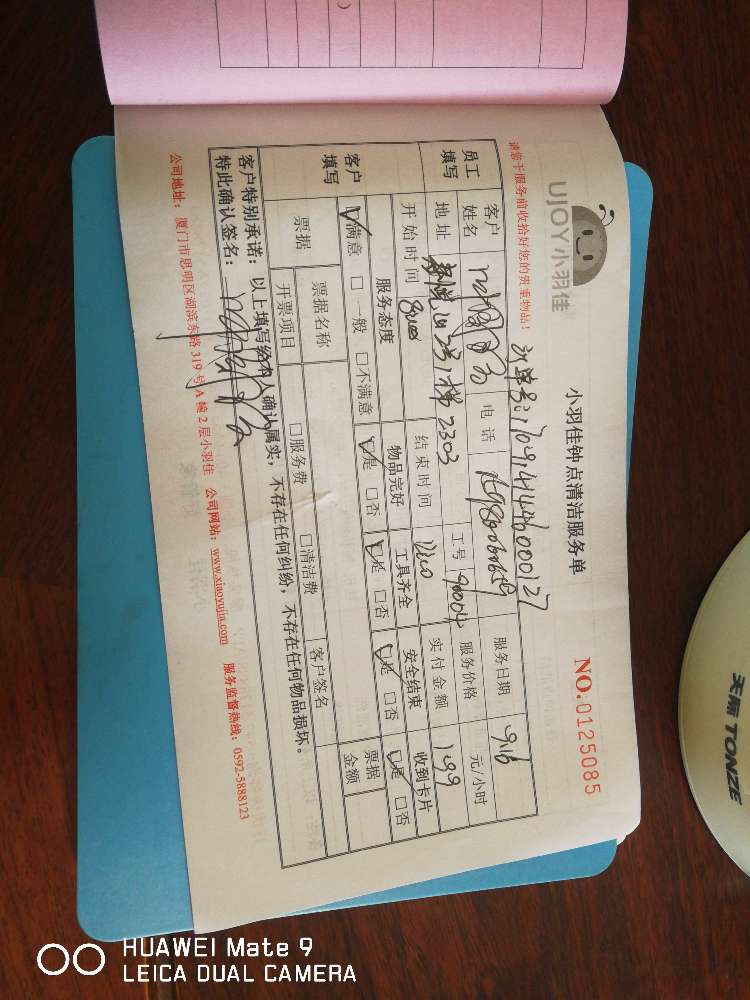 UJOY小羽佳
小羽佳钟点清洁服务单
NO.0125085
请您于服务前收拾好您的贵重物品!
订单号:170914144600127
员工填写 客户姓名 电话 服务日期 9.16
地址 2303 工号 90004 服务价格 元/小时
开始时间 8:00 结束时间 12:00 实付金额 1299
客户填写 服务态度 物品完好 工具齐全 安全结束 收到卡片
满意 □一般 □不满意 是 □否 是 □否 是 □否 是 □否
票据 票据名称 客户签名 票据金额
开票项目 □服务费 □清洁费
客户特别承诺:以上填写经本人确认属实,不存在任何纠纷,不存在任何物品损坏。
特此确认签名:
公司地址:厦门市思明区湖滨东路319号A幢2层小羽佳 公司网站:www.xiaoyujia.com 服务监督热线:0592-5888123
天际 TONZE
HUAWEI Mate 9
LEICA DUAL CAMERA